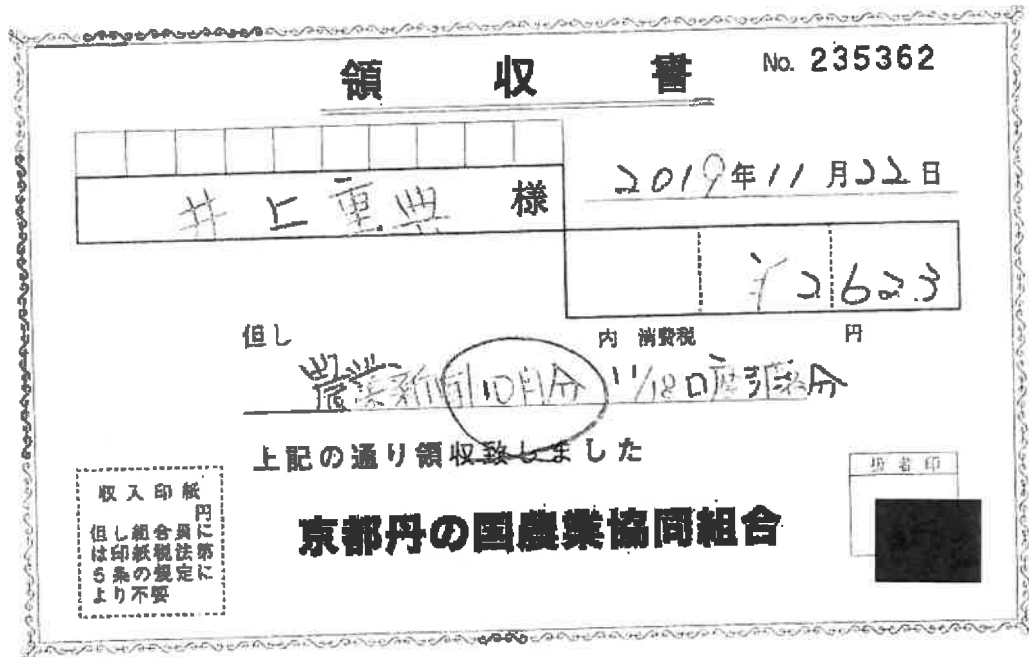 領収書
No. 235362
2019年11月22日
井上重典 様
¥2623
但し
内 消費税 円
農業新聞10月分 11/18口座引落分
上記の通り領収致しました
扱者印
収入印紙
円
但し組合員に
は印紙税法第
5条の規定に
より不要
京都丹の国農業協同組合